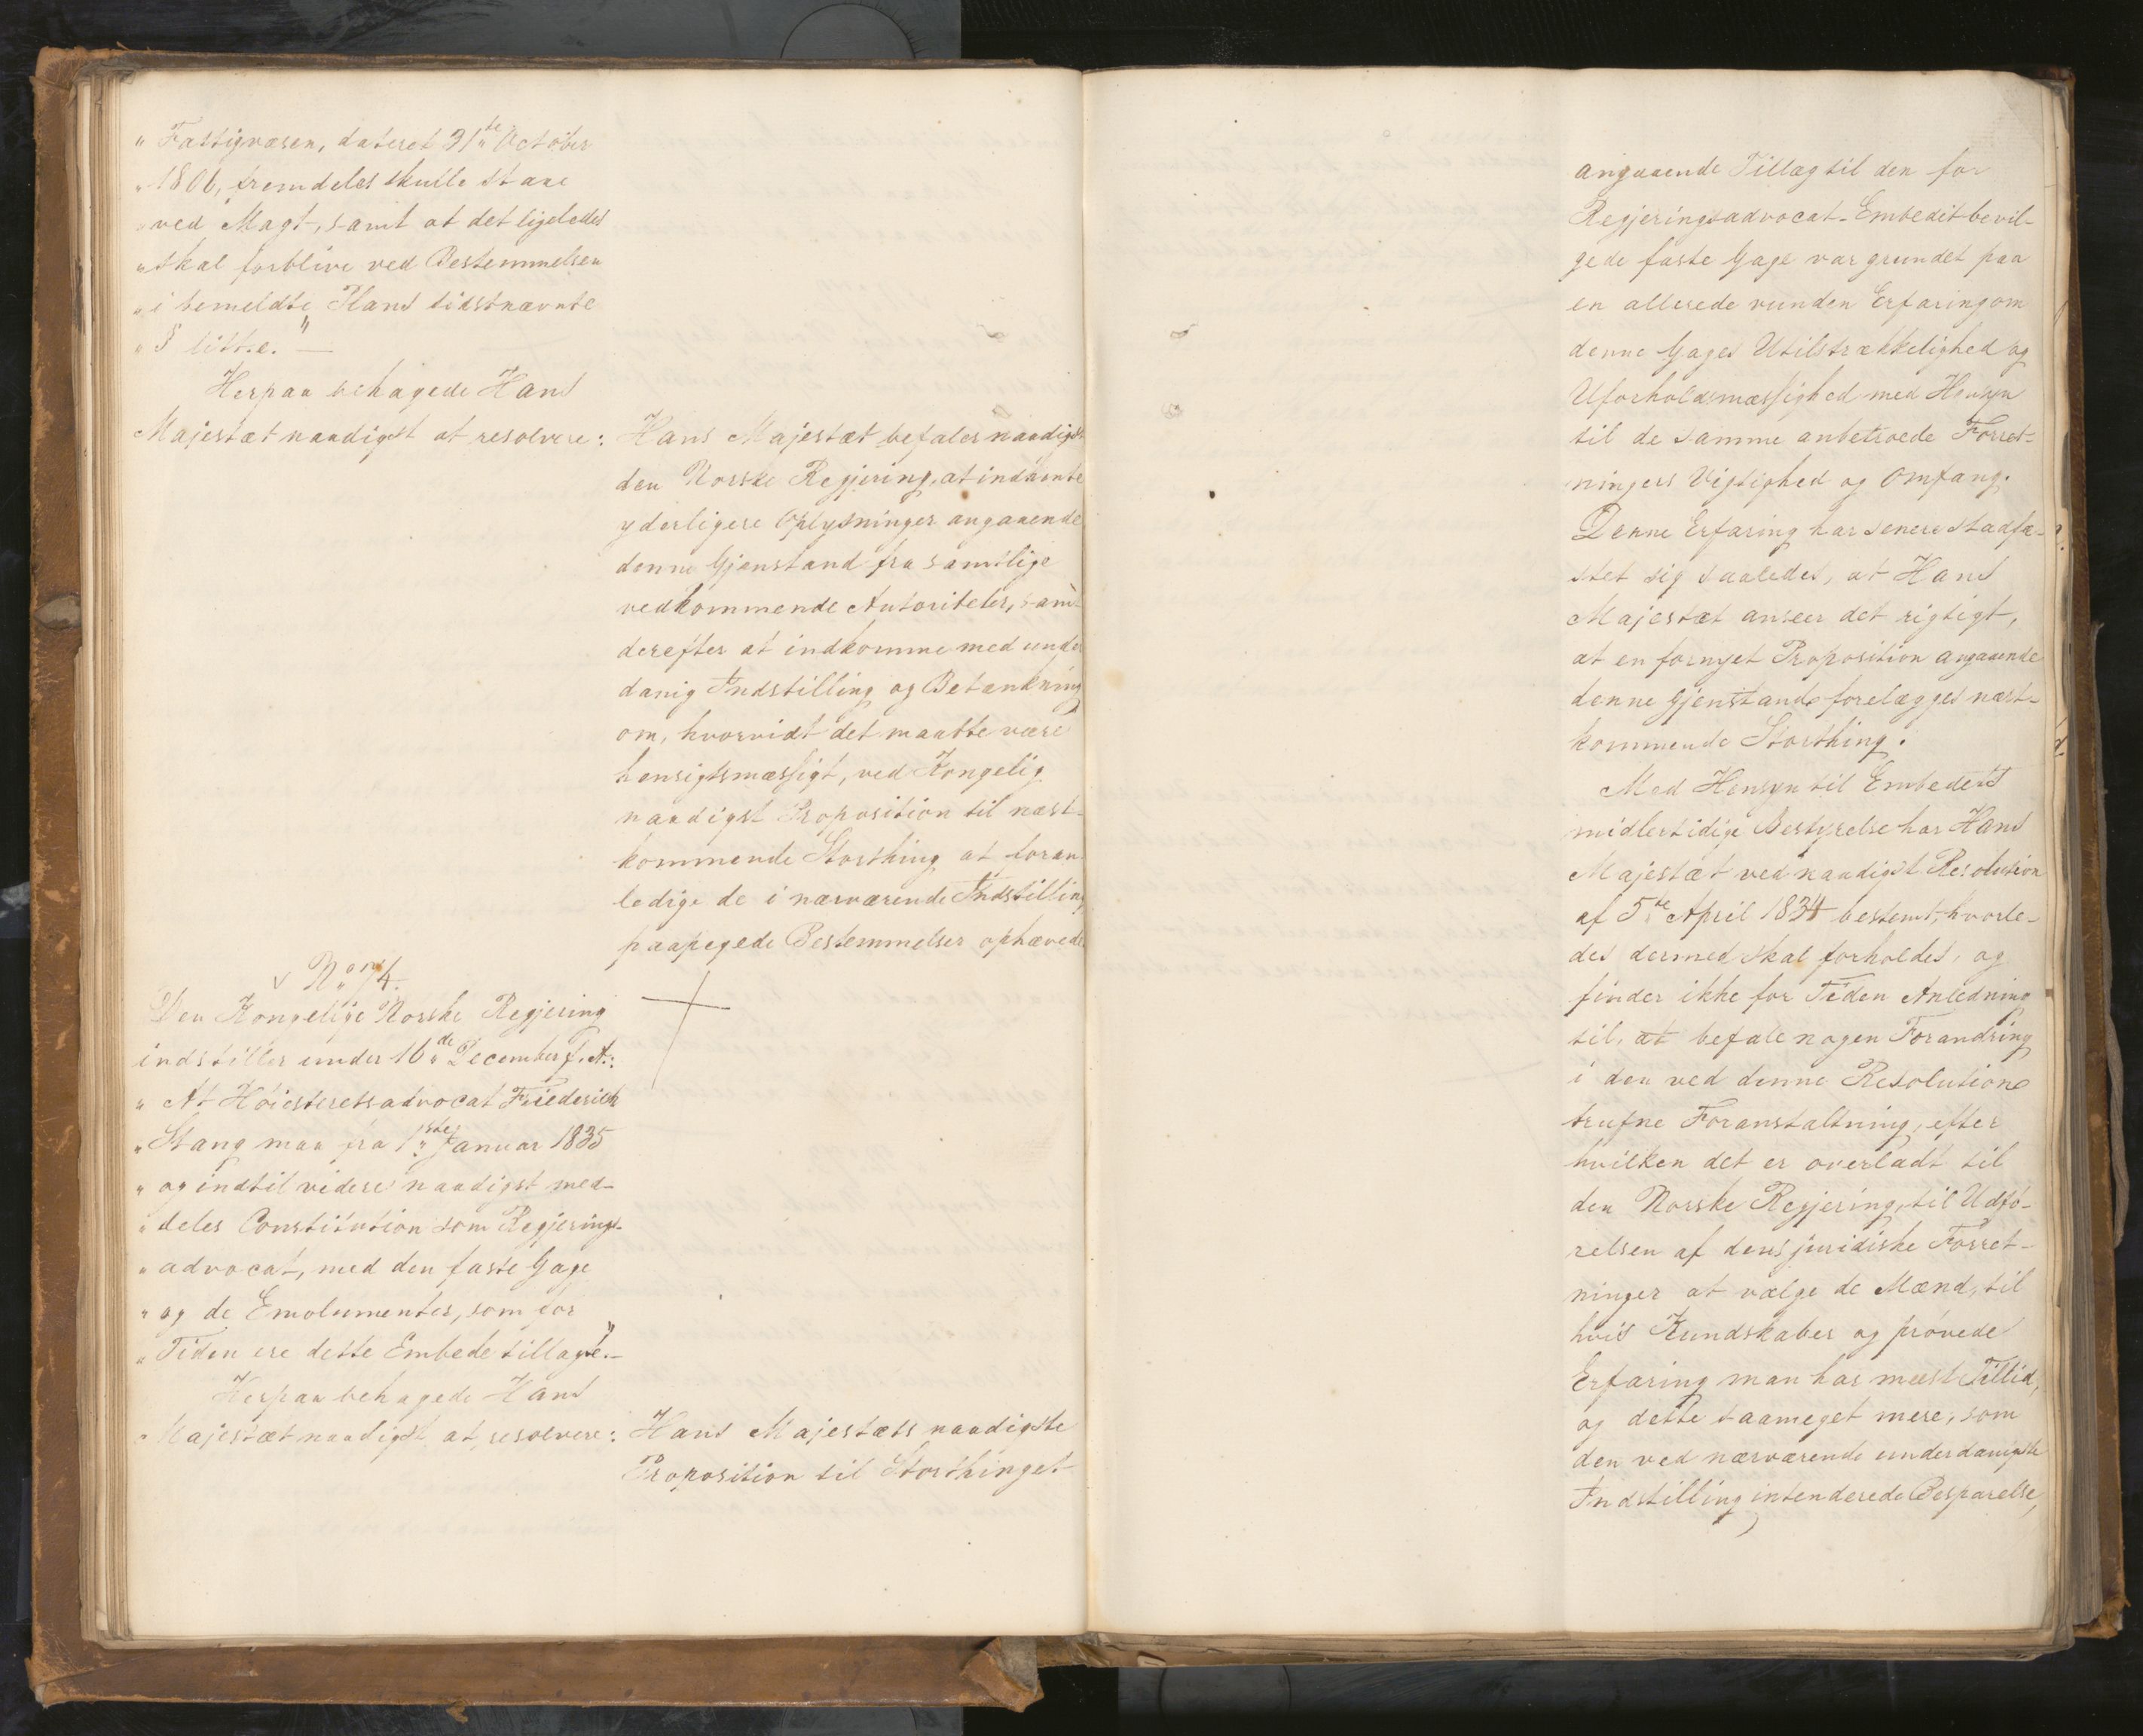 " Fattigvæsen, dateret 31te October
" 1806, fremdeles skulle staae
" ved Magt, samt at det ligeledes
" skal forblive ved Bestemmelsen
" i bemeldte Plans sidstnævnte
" § litt. e." —
Herpaa behagede Hans
Majestæt naadigst at resolvere:
Hans Majestæt befaler naadigst
den Norske Regjering, at indhente
yderligere Oplysninger angaaende
denne Gjenstand fra samtlige
vedkommende Autoriteter, samt
derefter at indkomme med under
danig Indstilling og Betænkning
om, hvorvidt det maatte være
hensigtsmæssigt, ved Kongelig
naadigst Proposition til næst-
kommende Storthing at foran
ledige de i nærværende Indstilling
paapegede Bestemmelser ophævede
No 74.
Den Kongelige Norske Regjering
indstiller under 16de December f. A.:
" At Høiesteretsadvocat Friederich
" Stang maa fra 1ste Januar 1835
" og indtil videre naadigst med-
" deles Constitution som Regjerings-
" advocat, med den faste Gage
" og de Emolumenter, som for
" Tiden ere dette Embede tillagte." —
Herpaa behagede Hans
Majestæt naadigst at resolvere:
Hans Majestæts naadigste
Proposition til Storthinget
angaaende Tillæg til den for
Regjeringsadvocat-Embedet bevil-
gede faste Gage var grundet paa
en allerede vunden Erfaring om
denne Gages Utilstrækkelighed og
Uforholdsmæssighed med Hensyn
til de samme anbetroede Forret-
ningers Vigtighed og Omfang.
Denne Erfaring har senere stadfæ-
stet sig saaledes, at Hans
Majestæt anseer det rigtigt,
at en fornyet Proposition angaaende
denne Gjenstand forelægges næst-
kommende Storthing.
Med Hensyn til Embedets
midlertidige Bestyrelse har Hans
Majestæt ved naadigst Resolution
af 5te April 1834 bestemt, hvorle-
des dermed skal forholdes, og
finder ikke for Tiden Anledning
til, at befale nogen Forandring
i den ved denne Resolution
trufne Foranstaltning, efter
hvilken det er overladt til
den Norske Regjering, til Udfø-
relsen af dens juridiske Forret-
ninger at vælge de Mænd, til
hvis Kundskaber og prøvede
Erfaring man har meest Tillid,
og dette saameget mere, som
den ved nærværende underdanigste
Indstilling intenderede Besparelse,